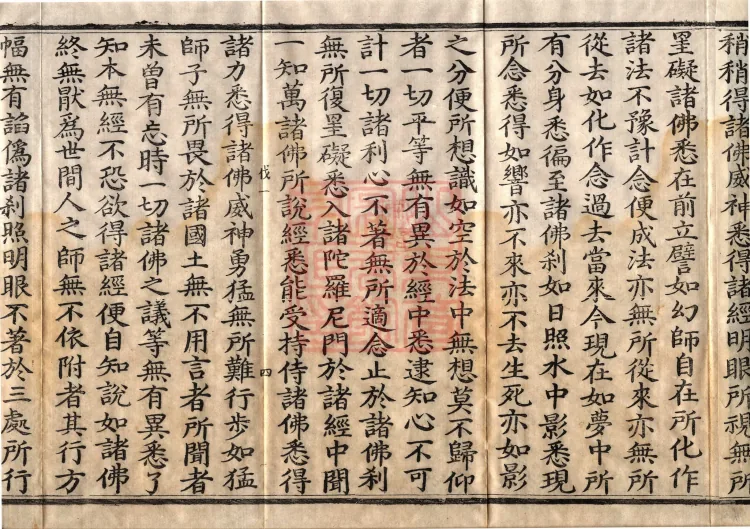 稍稍得諸佛威神悉得諸經明眼所視無所
罣礙諸佛悉在前立譬如幻師自在所化作
諸法不豫計念便成法亦無所從來亦無所
從去如化作念過去當來今現在如夢中所
有分身悉徧至諸佛刹如日照水中影悉現
所念悉得如響亦不來亦不去生死亦如影
之分便所想識如空於法中無想莫不歸仰
者一切平等無有異於經中悉逮知心不可
計一切諸刹心不著無所適念止於諸佛刹
無所復罣礙悉入諸陀羅尼門於諸經中聞
一知萬諸佛所說經悉能受持侍諸佛悉得
伐一 四
諸力悉得諸佛威神勇猛無所難行步如猛
師子無所畏於諸國土無不用言者所聞者
未曾有忘時一切諸佛之議等無有異悉了
知本無經不恐欲得諸經便自知說如諸佛
終無猒爲世間人之師無不依附者其行方
幅無有諂僞諸刹照明眼不著於三處所行